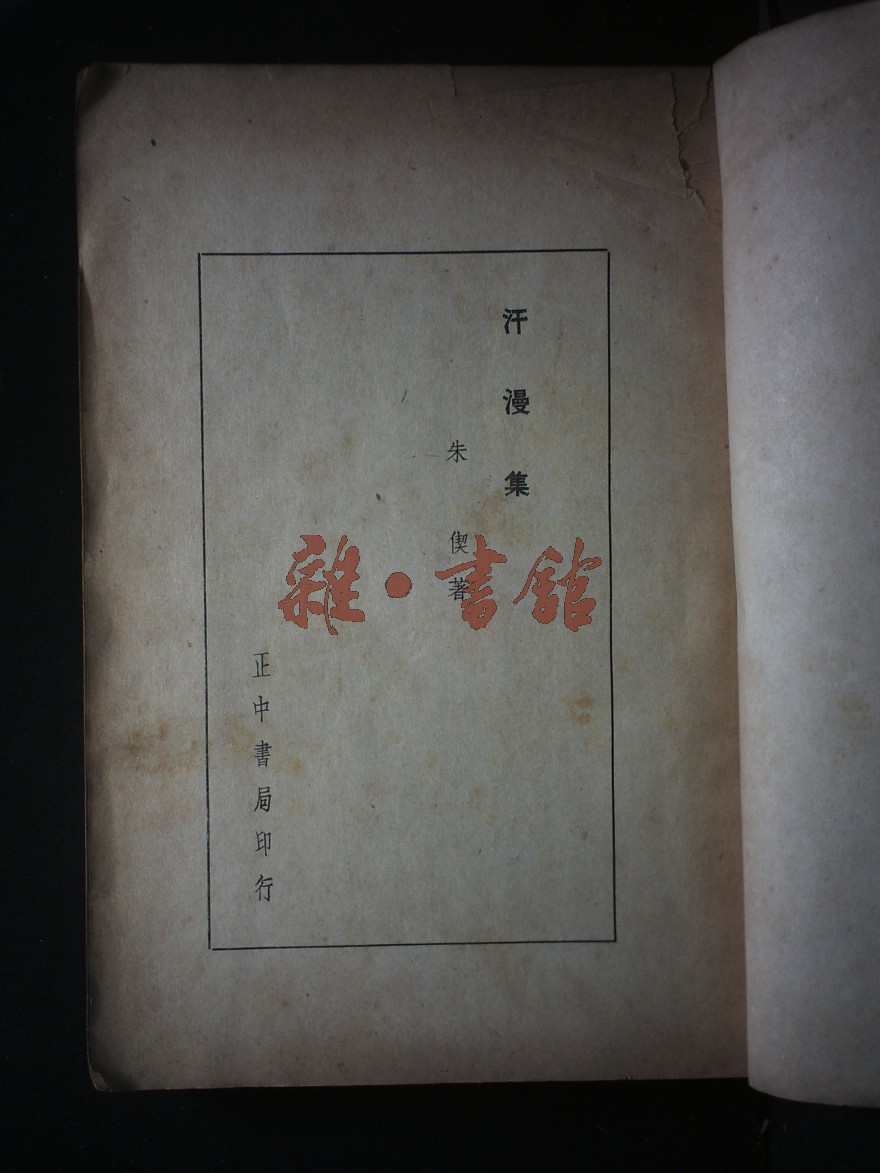 汗漫集
朱偰著
正中書局印行
雜·書館